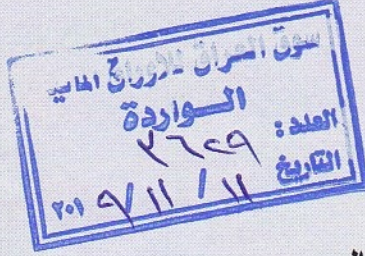 سوق العراق للاوراق المالية
الـواردة
العدد: ٣٦٢٩
التاريخ ١١ / ١١ / ٢٠١٩